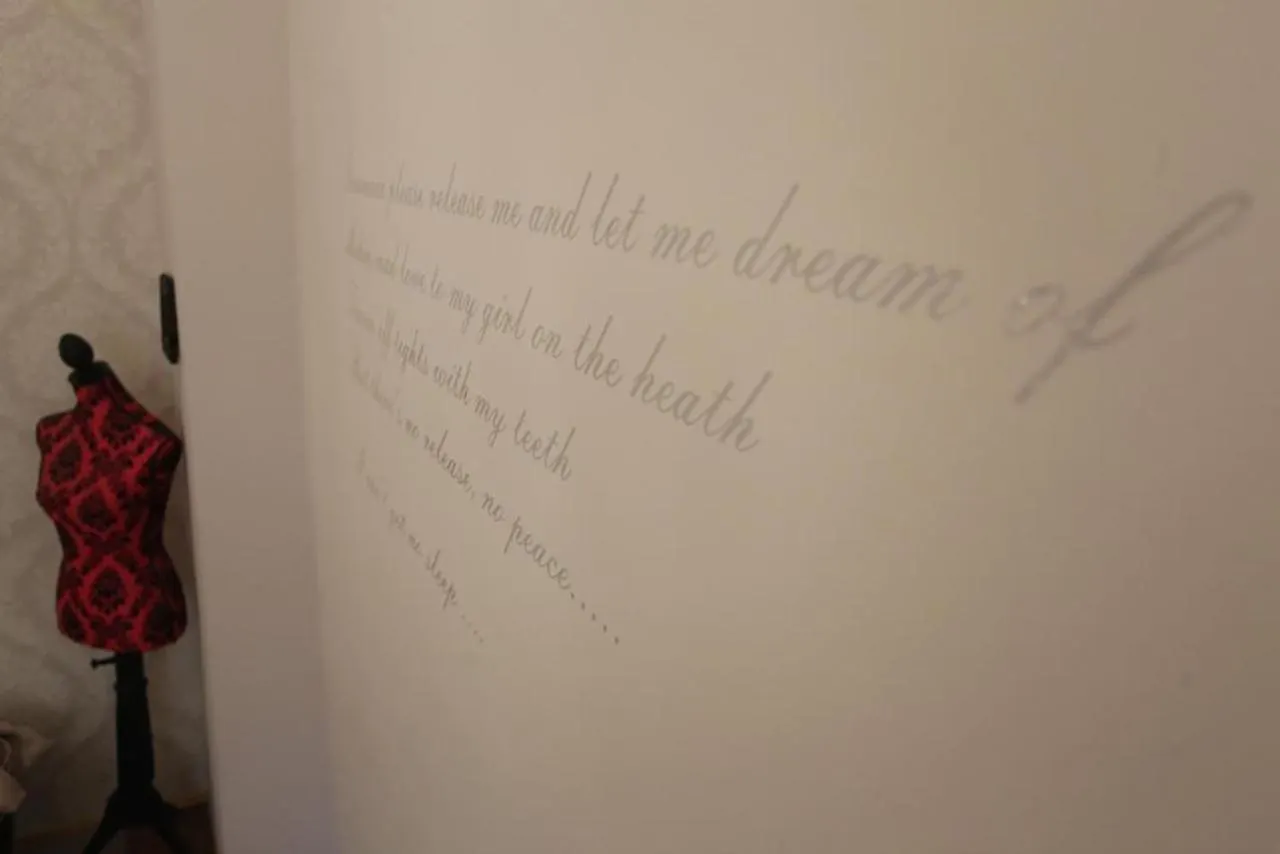 please release me and let me dream of
love to my girl on the heath
all lights with my teeth
no release, no peace.....
me sleep ....